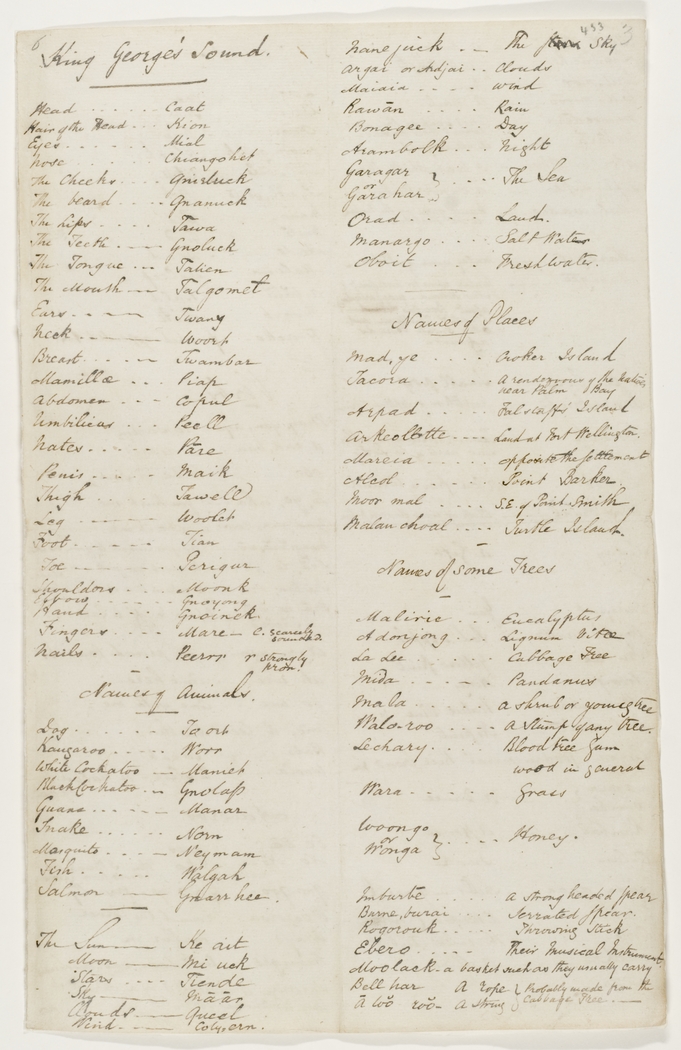 King George's Sound.
Head ..... Caat
Hair of the Head ... Kion
Eyes ...... Mial
Nose Chiangohet
The Cheeks .... Gnieluck
The beard .... Gnanuck
The Lips ..... Tawa
The Teeth —— Gnoluck
The Tongue ... Talien
The Mouth —— Talgomet
Ears .. —— Twang
Neck ———— Woort
Breast ..—— Twambar
Mamillæ .... Piap
Abdomen —— Copul
Umbilicus ... Peell
Nates .... Pare
Penis .. —— Maik
Thigh .... Tawell
Leg ———— Woolet
Foot ..... Tian
Toe ——.... Perigur
Shoulders —— Moonk
Elbow ...... Gnoyong
Hand ...... Gnoinek
Fingers .... Mare — e. scarcely sounded.
Nails .... Peerr r strongly pron.
Names of Animals.
Dog ...... Toort
Kangaroo ..... Worr
White Cockatoo — Maniet
Black Cockatoo — Gnolap
Guana ... — Manar
Snake ..... Norn
Mosquito .... Neymam
Fish .. —— Walgah
Salmon —— Gnarrhee.
The Sun —— Ke ait
Moon —— Mi uck
Stars —— Tiende
Sky —— Maar
Clouds —— Queel
Wind. —— Coly,ern.
433 3
Nanejuck .. — The Sky
Argai or Adjai .. Clouds
Maiaia .. —— Wind
Rawān .... Rain
Bonagee .... Day
Arambolk .... Night
Garagar
or .... The Sea
Garahar
Orad ..... Land.
Manargo .... Salt Water
Oboit .... Fresh water.
Names of Places
Mad,ye .... Croker Island
Tacora .... A rendezvous of the Natives near Palm Bay
Arpad ..... Falstaff's Island
Arkeollotte .... Land at Fort Wellington.
Mareia ..... opposite the settlement
Alcol ..... Point Barker.
Moor mal .... S.E. of Point Smith
Malan choal .... Turtle Island.
Names of some Trees
Malirie .... Eucalyptus
Adonjong .... Lignum Vitæ
La Lee .... Cabbage Tree
Mida .. —— Pandanus
Mala ..... a shrub or young tree
Walo-roo .... a Stump of any tree.
Lechary .... Blood tree Gum
wood in general
Wara ..... Grass
Woongo
or .... Honey.
Wonga
Imburbe .... a strong headed spear
Burre,burai .... Serrated Spear.
Rogorouk .... Throwing Stick
Ebero .... Their Musical Instrument.
Moolack - a basket such as they usually carry
Bell har A rope } Probably made from the
ā lŏŏ rŏŏ - a string } Cabbage Tree. —